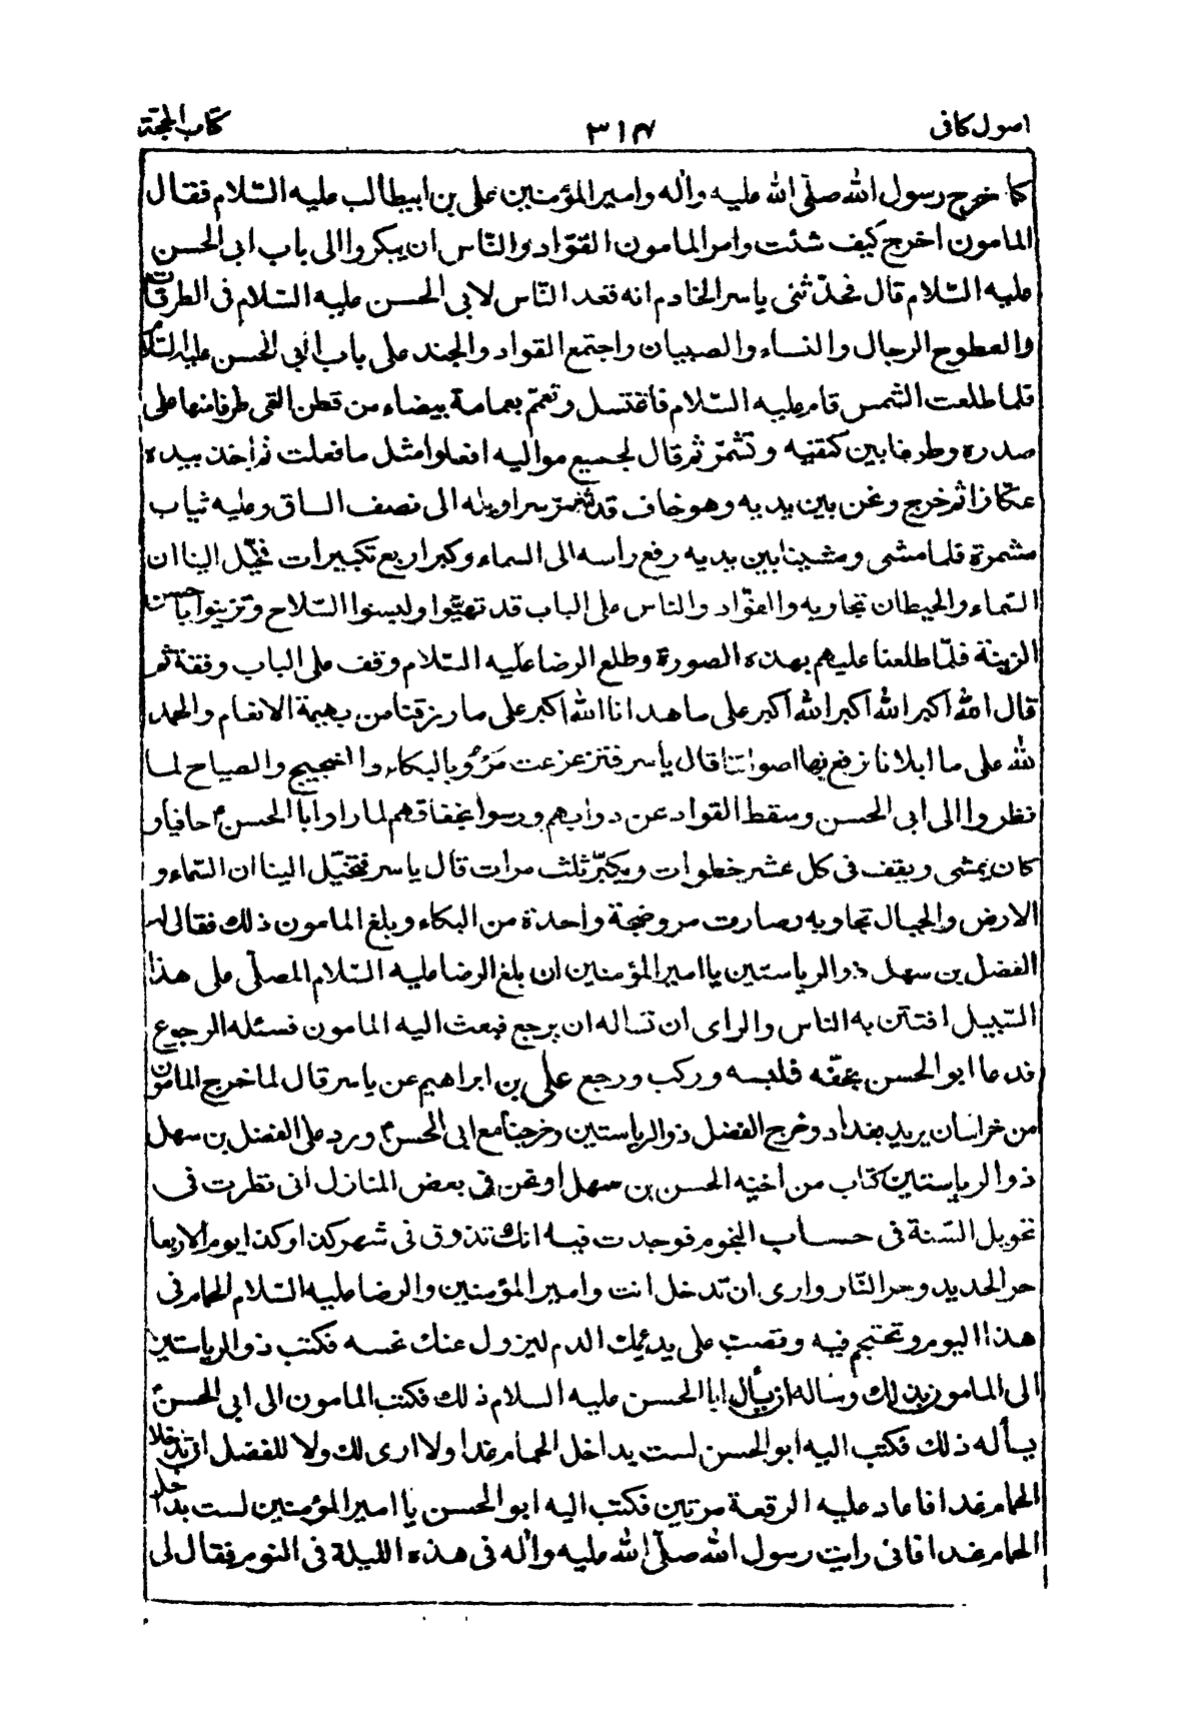 اصول كافى ٣١٤ كتاب الحجّة
كما خرج رسول الله صلّى الله عليه واله وامير المؤمنين على بن ابيطالب عليه السّلام فقال
المامون اخرج كيف شئت وامر المامون القوّاد والنّاس ان يبكروا الى باب ابى الحسن
عليه السّلام قال فحدّثنى ياسر الخادم انه قعد النّاس لابى الحسن عليه السّلام فى الطرقات
والسطوح الرجال والنساء والصبيان واجتمع القواد والجند على باب ابى الحسن عليه السّلام
فلما طلعت الشّمس قام عليه السّلام فاغتسل وتعمّم بعمامة بيضاء من قطن القى طرفا منها على
صدره وطرفا بين كتفيه وتشمّر ثم قال لجميع مواليه افعلوا مثل ما فعلت ثم اخذ بيده
عكّازا ثم خرج ونحن بين يديه وهو حاف قد شمّر سراويله الى نصف الساق وعليه ثياب
مشمرة فلما مشى ومشينا بين يديه رفع راسه الى السماء وكبر اربع تكبيرات فخيّل الينا ان
السّماء والحيطان تجاوبه والقوّاد والناس على الباب قد تهيّوا ولبسوا السّلاح وتزينوا باحسن
الزينة فلمّا طلعنا عليهم بهذه الصورة وطلع الرضا عليه السّلام وقف على الباب وقفة ثم
قال الله اكبر الله اكبر الله اكبر على ما هدانا الله اكبر على ما رزقنا من بهيمة الانعام والحمد
لله على ما ابلانا نرفع بها اصواتنا قال ياسر فتزعزعت مَرْو بالبكاء والضجيج والصياح لما
نظروا الى ابى الحسن وسقط القواد عن دوابهم ورموا بخفافهم لما راوا ابا الحسن ع حافيا و
كان يمشى ويقف فى كل عشر خطوات ويكبّر ثلث مرات قال ياسر فتخيّل الينا ان السّماء و
الارض والجبال تجاوبه وصارت مرو ضجة واحدة من البكاء وبلغ المامون ذلك فقال له
الفضل بن سهل ذو الرياستين يا امير المؤمنين ان بلغ الرضا عليه السّلام المصلّى على هذا
السّبيل افتتن به الناس والراى ان تساله ان يرجع فبعث اليه المامون فسئله الرجوع
فدعا ابو الحسن بخفّه فلبسه وركب ورجع على بن ابراهيم عن ياسر قال لما خرج المامون
من خراسان يريد بغداد وخرج الفضل ذو الرياستين وخرجنا مع ابى الحسن ع ورد على الفضل بن سهل
ذو الرياستين كتاب من اخيه الحسن بن سهل ونحن فى بعض المنازل انى نظرت فى
تحويل السّنة فى حساب النجوم فوجدت فيه انك تذوق فى شهر كذا وكذا يوم الاربعا
حر الحديد وحر النّار وارى ان تدخل انت وامير المؤمنين والرضا عليه السّلام الحمام فى
هذا اليوم وتحتجم فيه وتصب على يديك الدم ليزول عنك نحسه فكتب ذو الرياستين
الى المامون بذلك وساله ان يسأل ابا الحسن عليه السلام ذلك فكتب المامون الى ابى الحسن ع
يسأله ذلك فكتب اليه ابو الحسن لست بداخل الحمام غدا ولا ارى لك ولا للفضل ان تدخلا
الحمام غدا فاعاد عليه الرقعة مرتين فكتب اليه ابو الحسن يا امير المؤمنين لست بداخل
الحمام غدا فانى رايت رسول الله صلّى الله عليه واله فى هذه الليلة فى النوم فقال لى